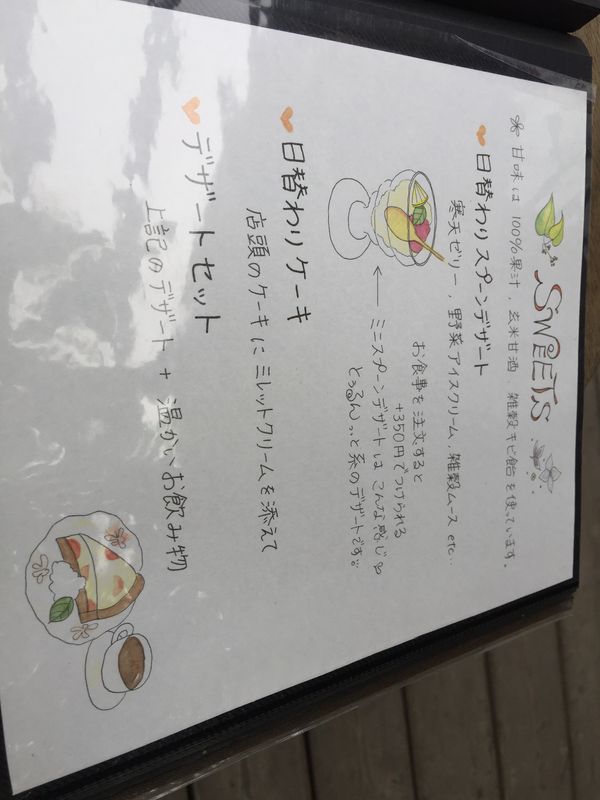 SWEETS
❀ 甘味は 100%果汁、玄米甘酒、雑穀キビ飴を使っています。
♥ 日替わりスプーンデザート
寒天ゼリー、野菜アイスクリーム、雑穀ムース etc..
お食事を注文すると
+350円でつけられる
← ミニスプーンデザートは こんな感じ
とぅるんっっと系のデザートです
♥ 日替わりケーキ
店頭のケーキに ミレットクリームを添えて
♥ デザートセット
上記のデザート + 温かいお飲み物